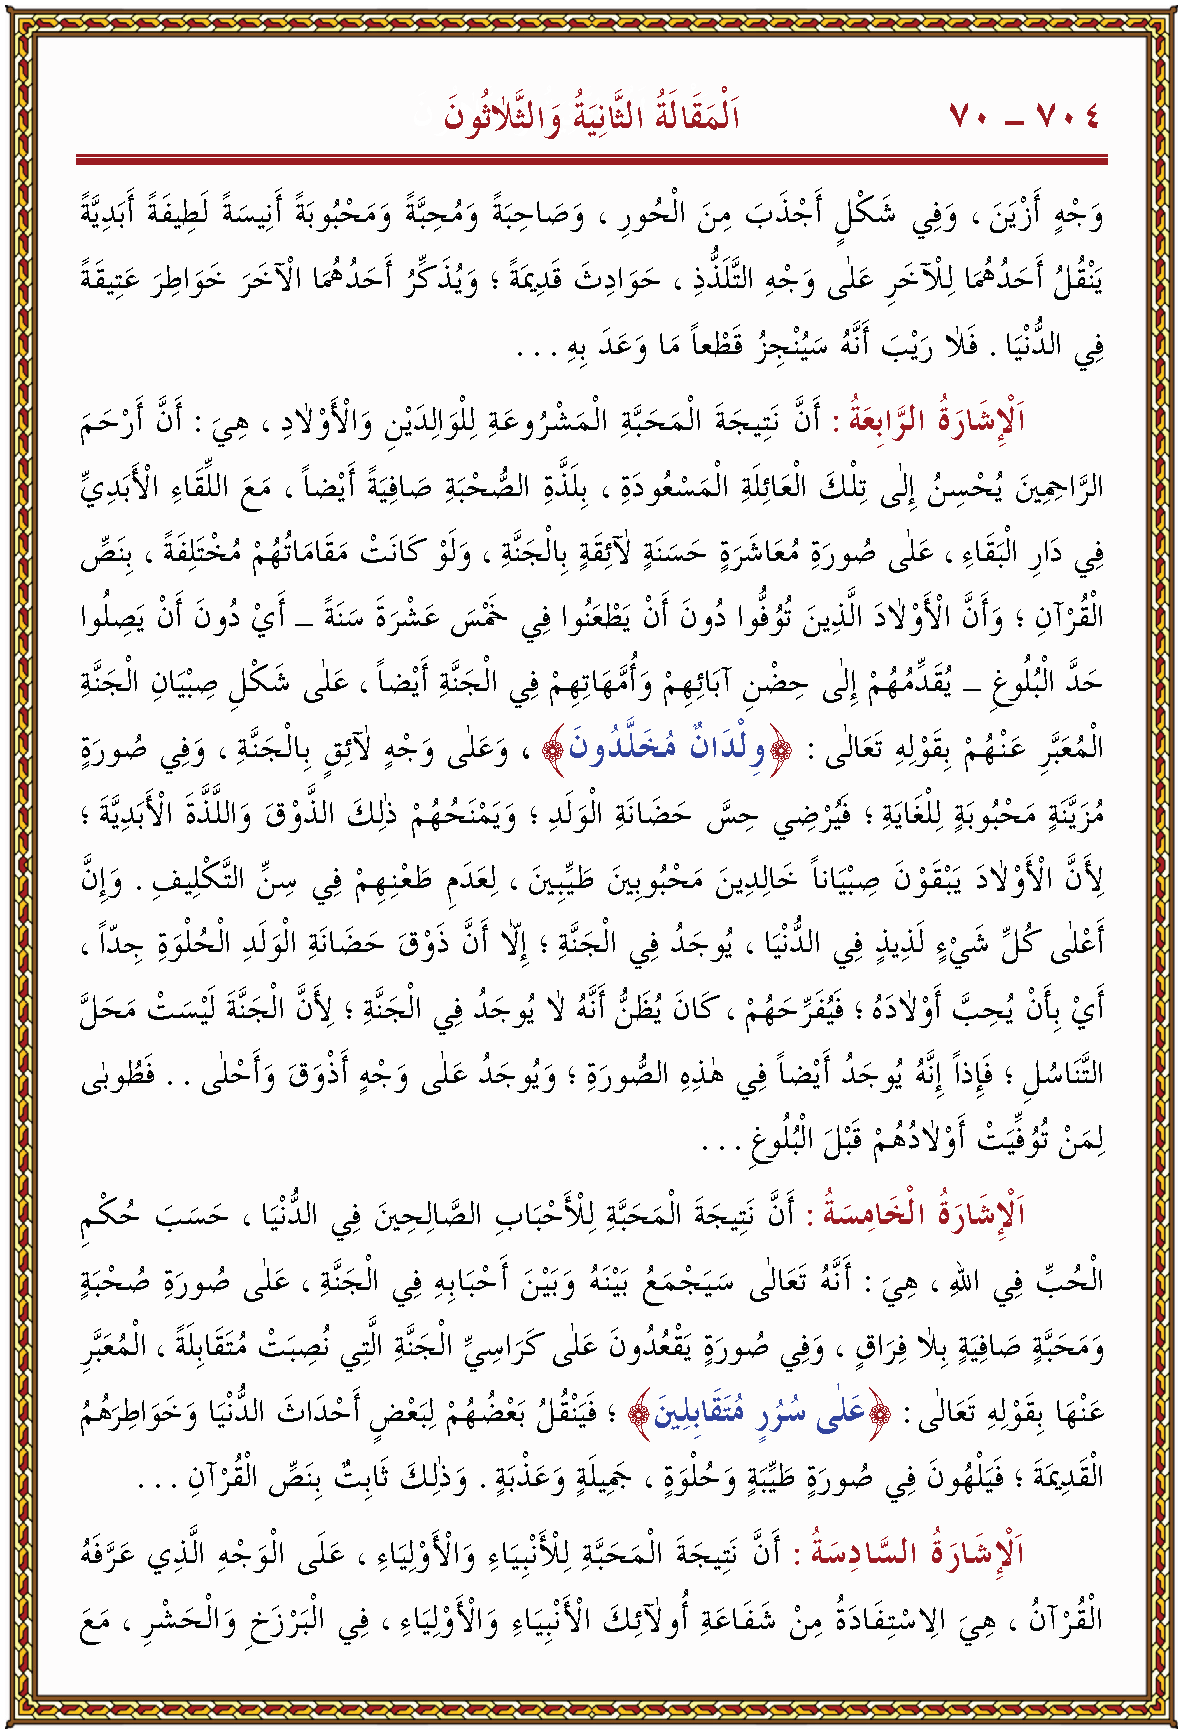 ٧٠٤ – ٧٠ اَلْمَقَالَةُ الثَّانِيَةُ وَالثَّلاٰثُونَ
وَجْهٍ أَزْيَنَ ، وَفِي شَكْلٍ أَجْذَبَ مِنَ الْحُورِ ، وَصَاحِبَةً وَمُحِبَّةً وَمَحْبُوبَةً أَنِيسَةً لَطِيفَةً أَبَدِيَّةً
يَنْقُلُ أَحَدُهُمَا لِلْآخَرِ عَلٰى وَجْهِ التَّلَذُّذِ ، حَوَادِثَ قَدِيمَةً ؛ وَيُذَكِّرُ أَحَدُهُمَا الْآخَرَ خَوَاطِرَ عَتِيقَةً
فِي الدُّنْيَا . فَلاٰ رَيْبَ أَنَّهُ سَيُنْجِزُ قَطْعاً مَا وَعَدَ بِهِ . . .
اَلْإِشَارَةُ الرَّابِعَةُ : أَنَّ نَتِيجَةَ الْمَحَبَّةِ الْمَشْرُوعَةِ لِلْوَالِدَيْنِ وَالْأَوْلاٰدِ ، هِيَ : أَنَّ أَرْحَمَ
الرَّاحِمِينَ يُحْسِنُ إِلٰى تِلْكَ الْعَائِلَةِ الْمَسْعُودَةِ ، بِلَذَّةِ الصُّحْبَةِ صَافِيَةً أَيْضاً ، مَعَ اللِّقَاءِ الْأَبَدِيِّ
فِي دَارِ الْبَقَاءِ ، عَلٰى صُورَةِ مُعَاشَرَةٍ حَسَنَةٍ لاٰئِقَةٍ بِالْجَنَّةِ ، وَلَوْ كَانَتْ مَقَامَاتُهُمْ مُخْتَلِفَةً ، بِنَصِّ
الْقُرْآنِ ؛ وَأَنَّ الْأَوْلاٰدَ الَّذِينَ تُوُفُّوا دُونَ أَنْ يَطْعَنُوا فِي خَمْسَ عَشْرَةَ سَنَةً – أَيْ دُونَ أَنْ يَصِلُوا
حَدَّ الْبُلُوغِ – يُقَدِّمُهُمْ إِلٰى حِضْنِ آبَائِهِمْ وَأُمَّهَاتِهِمْ فِي الْجَنَّةِ أَيْضاً ، عَلٰى شَكْلِ صِبْيَانِ الْجَنَّةِ
الْمُعَبَّرِ عَنْهُمْ بِقَوْلِهِ تَعَالٰى : ﴿وِلْدَانٌ مُخَلَّدُونَ﴾ ، وَعَلٰى وَجْهٍ لاٰئِقٍ بِالْجَنَّةِ ، وَفِي صُورَةٍ
مُزَيَّنَةٍ مَحْبُوبَةٍ لِلْغَايَةِ ؛ فَيُرْضِي حِسَّ حَضَانَةِ الْوَلَدِ ؛ وَيَمْنَحُهُمْ ذٰلِكَ الذَّوْقَ وَاللَّذَّةَ الْأَبَدِيَّةَ ؛
لِأَنَّ الْأَوْلاٰدَ يَبْقَوْنَ صِبْيَاناً خَالِدِينَ مَحْبُوبِينَ طَيِّبِينَ ، لِعَدَمِ طَعْنِهِمْ فِي سِنِّ التَّكْلِيفِ . وَإِنَّ
أَعْلٰى كُلِّ شَيْءٍ لَذِيذٍ فِي الدُّنْيَا ، يُوجَدُ فِي الْجَنَّةِ ؛ إِلاّٰ أَنَّ ذَوْقَ حَضَانَةِ الْوَلَدِ الْحُلْوَةِ جِدّاً ،
أَيْ بِأَنْ يُحِبَّ أَوْلاٰدَهُ ؛ فَيُفَرِّحَهُمْ ، كَانَ يُظَنُّ أَنَّهُ لاٰ يُوجَدُ فِي الْجَنَّةِ ؛ لِأَنَّ الْجَنَّةَ لَيْسَتْ مَحَلَّ
التَّنَاسُلِ ؛ فَإِذاً إِنَّهُ يُوجَدُ أَيْضاً فِي هٰذِهِ الصُّورَةِ ؛ وَيُوجَدُ عَلٰى وَجْهٍ أَذْوَقَ وَأَحْلٰى . . فَطُوبٰى
لِمَنْ تُوُفِّيَتْ أَوْلاٰدُهُمْ قَبْلَ الْبُلُوغِ . . .
اَلْإِشَارَةُ الْخَامِسَةُ : أَنَّ نَتِيجَةَ الْمَحَبَّةِ لِلْأَحْبَابِ الصَّالِحِينَ فِي الدُّنْيَا ، حَسَبَ حُكْمِ
الْحُبِّ فِي اللهِ ، هِيَ : أَنَّهُ تَعَالٰى سَيَجْمَعُ بَيْنَهُ وَبَيْنَ أَحْبَابِهِ فِي الْجَنَّةِ ، عَلٰى صُورَةِ صُحْبَةٍ
وَمَحَبَّةٍ صَافِيَةٍ بِلاٰ فِرَاقٍ ، وَفِي صُورَةٍ يَقْعُدُونَ عَلٰى كَرَاسِيِّ الْجَنَّةِ الَّتِي نُصِبَتْ مُتَقَابِلَةً ، الْمُعَبَّرِ
عَنْهَا بِقَوْلِهِ تَعَالٰى : ﴿عَلٰى سُرُرٍ مُتَقَابِلِينَ﴾ ؛ فَيَنْقُلُ بَعْضُهُمْ لِبَعْضٍ أَحْدَاثَ الدُّنْيَا وَخَوَاطِرَهُمُ
الْقَدِيمَةَ ؛ فَيَلْهُونَ فِي صُورَةٍ طَيِّبَةٍ وَحُلْوَةٍ ، جَمِيلَةٍ وَعَذْبَةٍ . وَذٰلِكَ ثَابِتٌ بِنَصِّ الْقُرْآنِ . . .
اَلْإِشَارَةُ السَّادِسَةُ : أَنَّ نَتِيجَةَ الْمَحَبَّةِ لِلْأَنْبِيَاءِ وَالْأَوْلِيَاءِ ، عَلَى الْوَجْهِ الَّذِي عَرَّفَهُ
الْقُرْآنُ ، هِيَ الاِسْتِفَادَةُ مِنْ شَفَاعَةِ أُولاٰئِكَ الْأَنْبِيَاءِ وَالْأَوْلِيَاءِ ، فِي الْبَرْزَخِ وَالْحَشْرِ ، مَعَ